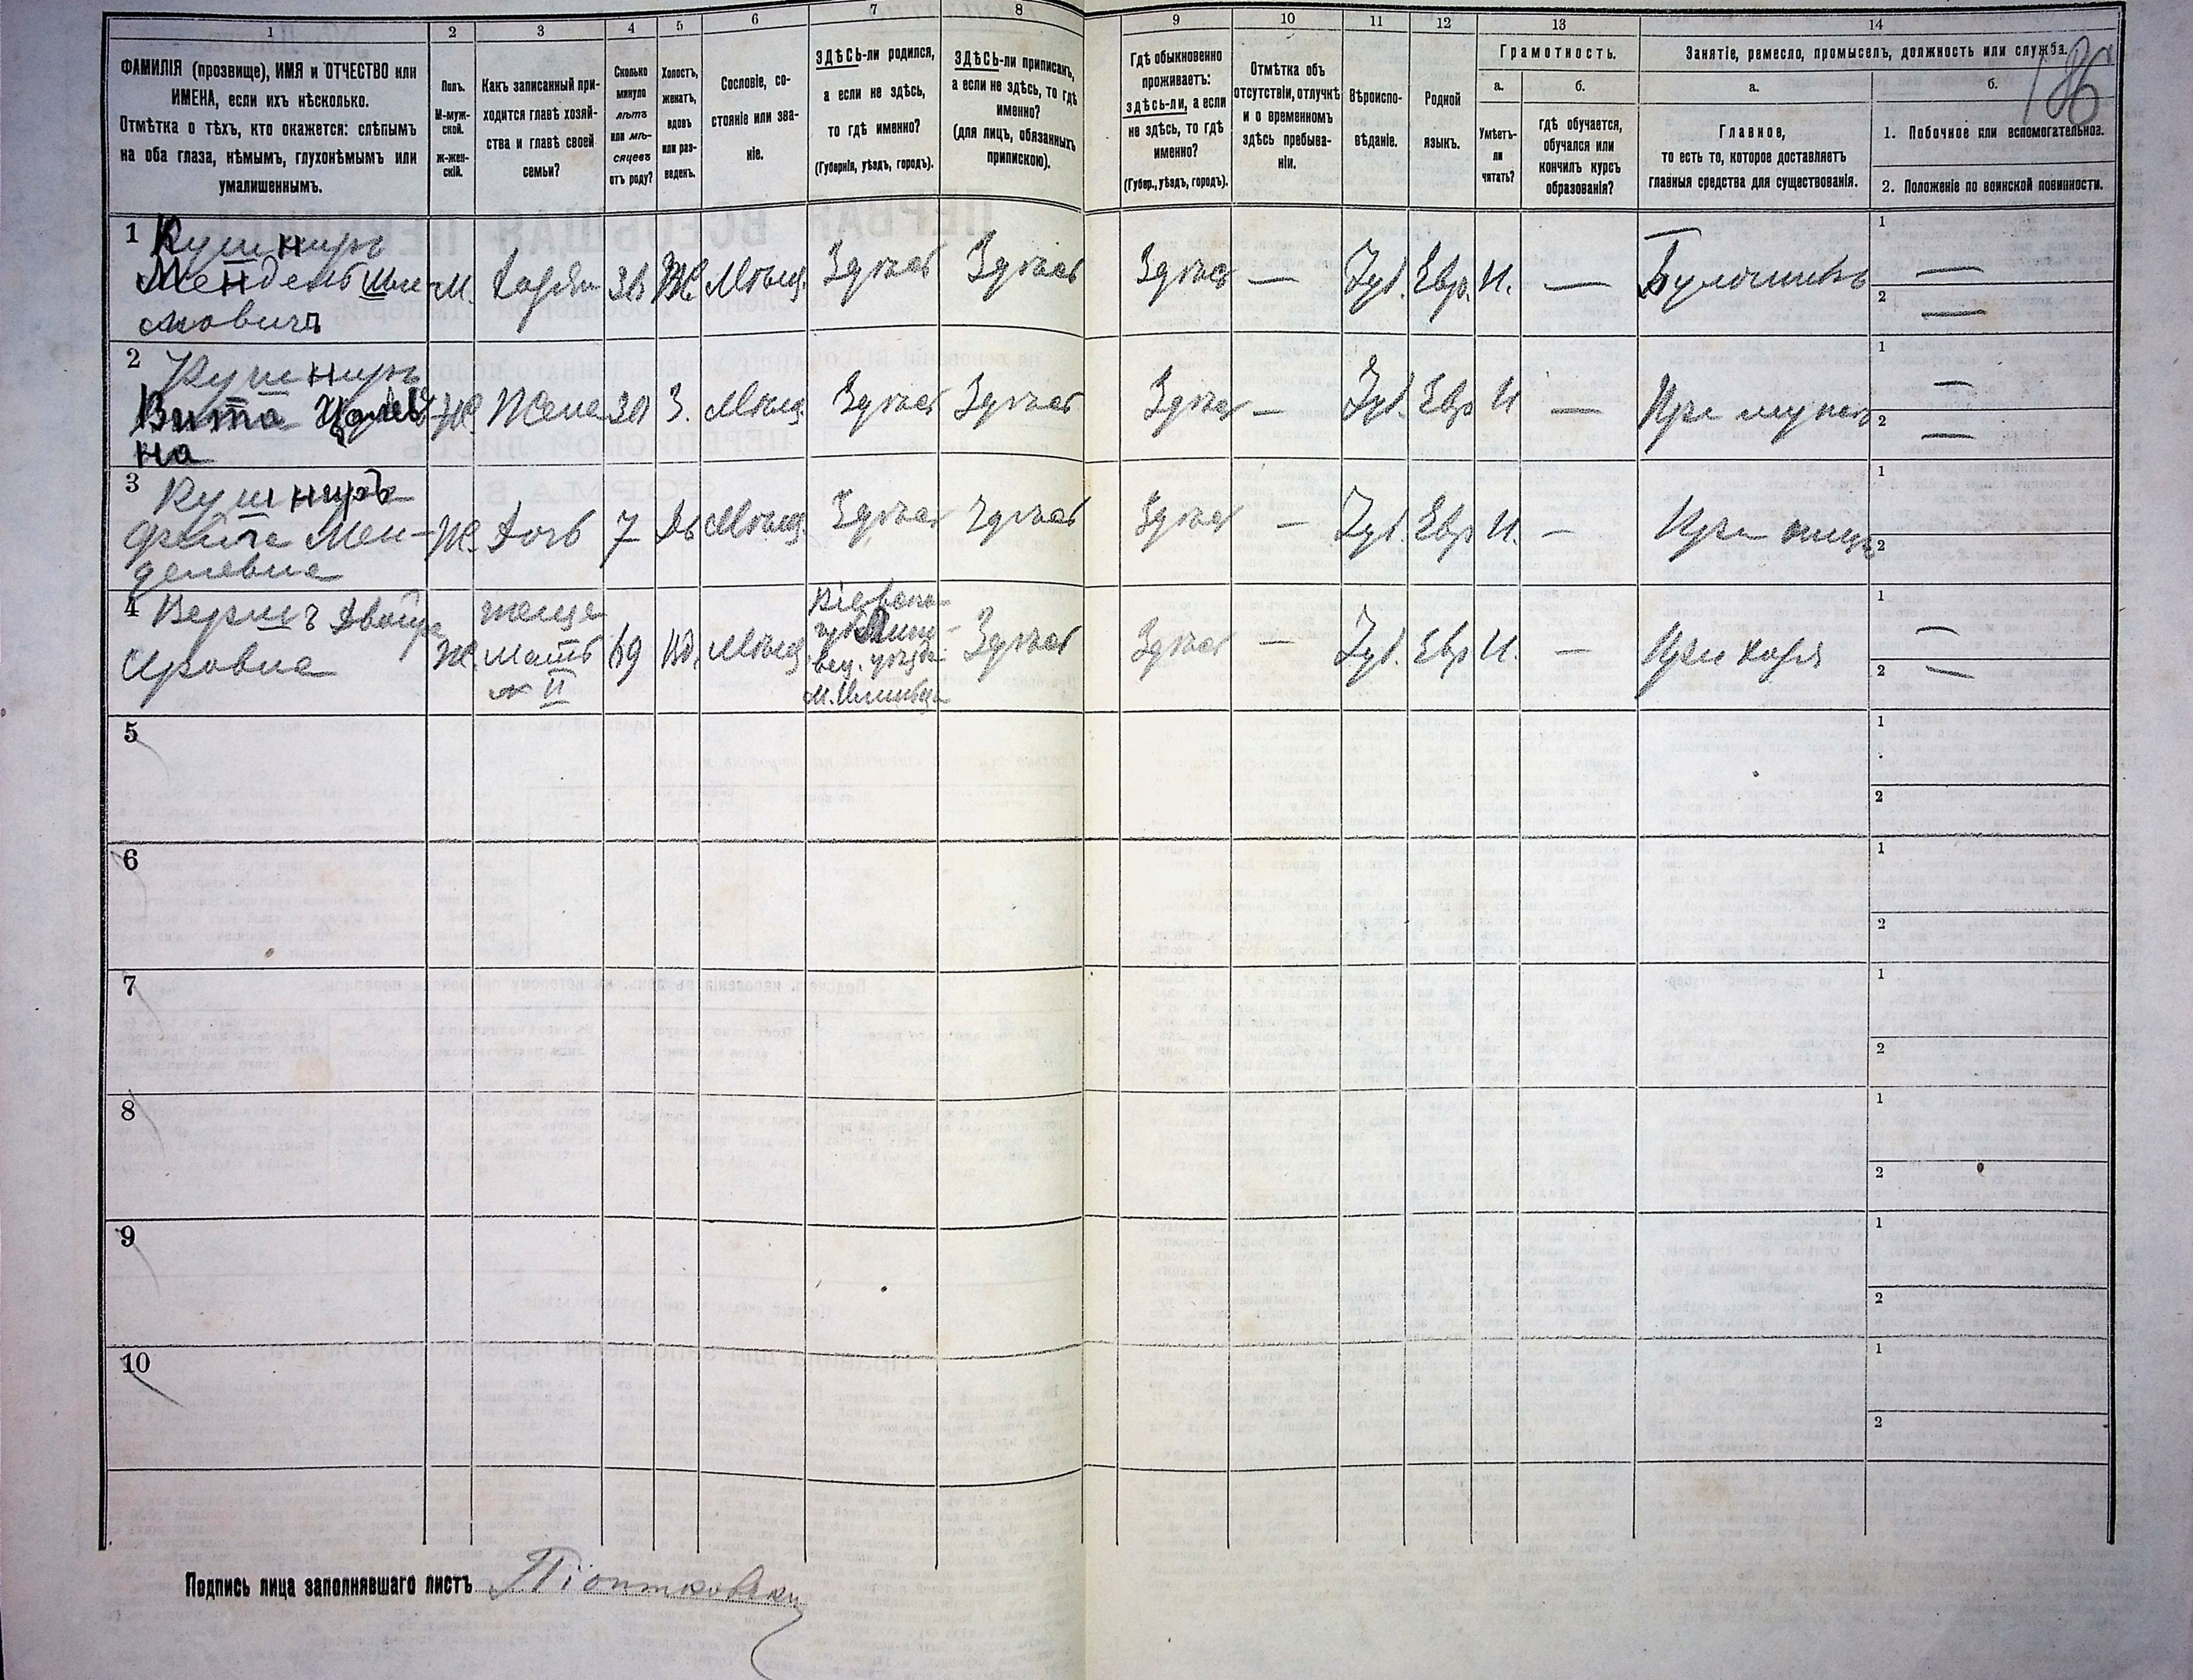 1 2 3 4 5 6 7 8 9 10 11 12 13 14
ФАМИЛІЯ (прозвище), ИМЯ и ОТЧЕСТВО или
ИМЕНА, если ихъ нѣсколько.
Отмѣтка о тѣхъ, кто окажется: слѣпымъ
на оба глаза, нѣмымъ, глухонѣмымъ или
умалишеннымъ.
Полъ.
М-муж-
ской.
ж-жен-
скій.
Какъ записанный при-
ходится главѣ хозяй-
ства и главѣ своей
семьи?
Сколько
минуло
лѣтъ
или мѣ-
сяцевъ
отъ роду?
Холостъ,
женатъ,
вдовъ
или раз-
веденъ.
Сословіе, со-
стояніе или зва-
ніе.
ЗДѢСЬ-ли родился,
а если не здѣсь,
то гдѣ именно?
(Губернія, уѣздъ, городъ).
ЗДѢСЬ-ли приписанъ,
а если не здѣсь, то гдѣ
именно?
(для лицъ, обязанныхъ
припискою).
Гдѣ обыкновенно
проживаетъ:
здѣсь-ли, а если
не здѣсь, то гдѣ
именно?
(Губер., уѣздъ, городъ).
Отмѣтка объ
отсутствіи, отлучкѣ
и о временномъ
здѣсь пребыва-
ніи.
Вѣроиспо-
вѣданіе.
Родной
языкъ.
Грамотность.
а.
Умѣетъ-
ли
читать?
б.
гдѣ обучается,
обучался или
кончилъ курсъ
образованія?
Занятіе, ремесло, промыселъ, должность или служба.
186
а.
Главное,
то есть то, которое доставляетъ
главныя средства для существованія.
б.
1. Побочное или вспомогательное.
2. Положеніе по воинской повинности.
1 Кушниръ
Мендель
М. 30 Ж. Мѣщ. Здѣсь Здѣсь Здѣсь — Іуд. Евр. Н. — Булочникъ
1 —
2 —
2 Кушниръ
Вита
на
Ж Жена 30 З. Мѣщ. Здѣсь Здѣсь Здѣсь — Іуд. Евр Н — При мужѣ
1 —
2 —
3 Кушниръ
Мен-
делевна
Ж. Дочь 7 Дѣ Мѣщ. Здѣсь Здѣсь Здѣсь — Іуд. Евр Н. — При отцѣ
2
4 Двойра
Ж. Мать 69 Вд. Мѣщ Здѣсь Здѣсь — Іуд. Евр Н. —
II
1 —
2 —
5 1
2
6 1
2
7 1
2
8 1
2
9 1
2
10 1
2
Подпись лица заполнявшаго листъ